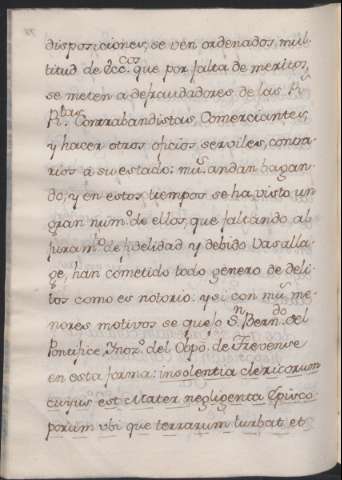 disposiciones, se vén ordenados mul-
titud de Ecc.cos que por falta de meritos,
se meten a defraudadores de las R.s
R.tas Contrabandistas, Comerciantes,
y hacer otros oficios serviles, contra-
rios á su estado: mu.s andan bagan-
do, y en estos tiempos se ha visto un
gran num.o de ellos, que faltando al
juram.to de fidelidad y debido Vasalla-
ge, han cometido todo genero de deli-
tos como es notorio: y si con mu.s me-
nores motivos se quejó S.n Bern.do del
Pontifice Ynoz.o del Obpo. de Trevense
en esta forma: insolentia clericorum
cuyus est Mater negligentia Episco-
porum vbi que terrarum turbat et